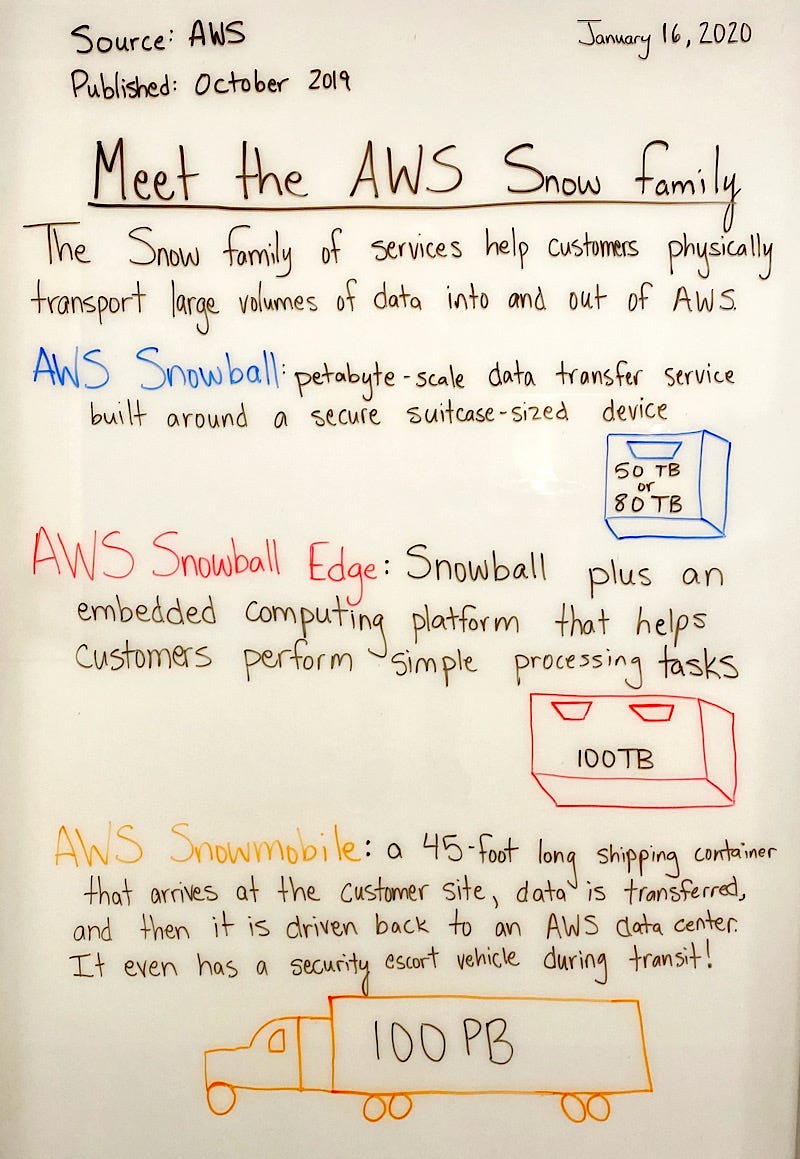 Source: AWS
January 16, 2020
Published: October 2019
Meet the AWS Snow family
The Snow family of services help customers physically
transport large volumes of data into and out of AWS.
AWS Snowball: petabyte-scale data transfer service
built around a secure suitcase-sized device
50 TB
or
80 TB
AWS Snowball Edge: Snowball plus an
embedded computing platform that helps
customers perform simple processing tasks
100TB
AWS Snowmobile: a 45-foot long shipping container
that arrives at the customer site, data is transferred,
and then it is driven back to an AWS data center.
It even has a security escort vehicle during transit!
100 PB